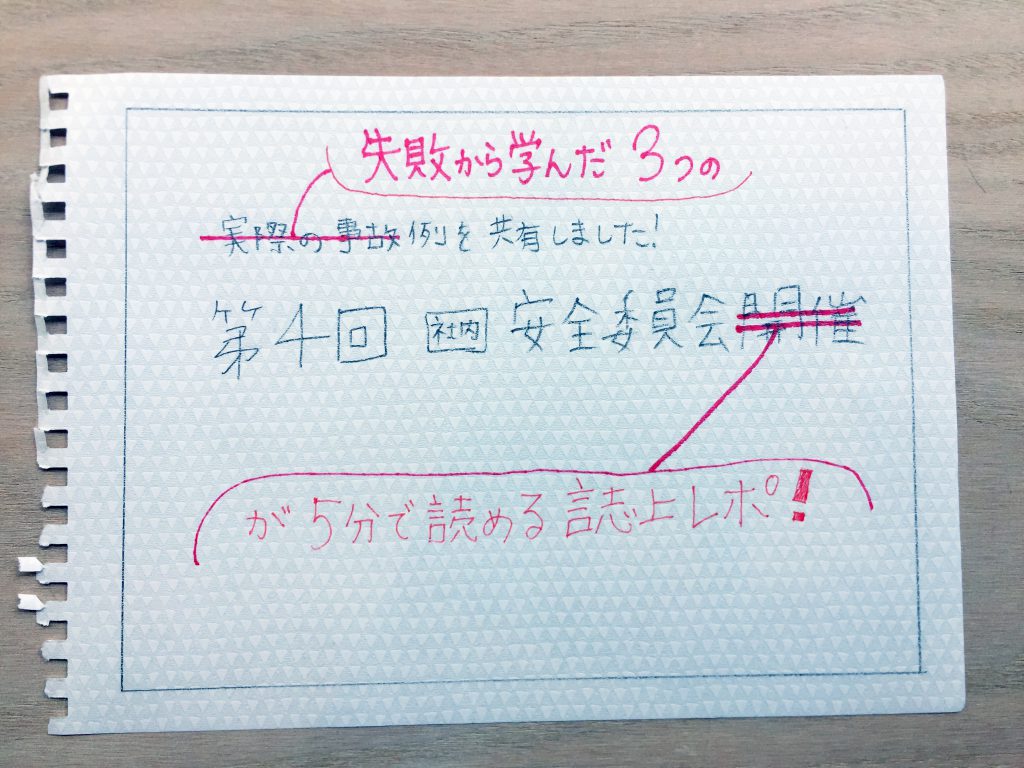 失敗から学んだ3つの
実際の事故例を共有しました!
第4回 社内 安全委員会開催
が5分で読める誌上レポ!